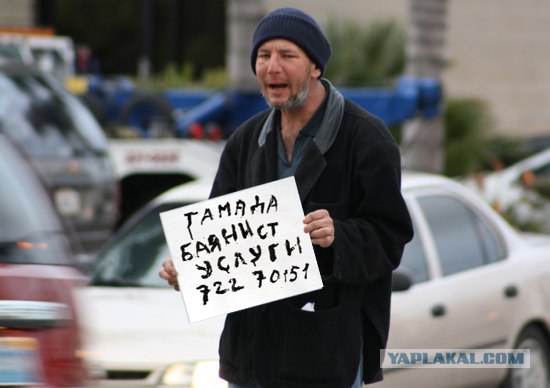 ТАМАДА
БАЯНИСТ
УСЛУГИ
722 70151
YAPLAKAL.COM